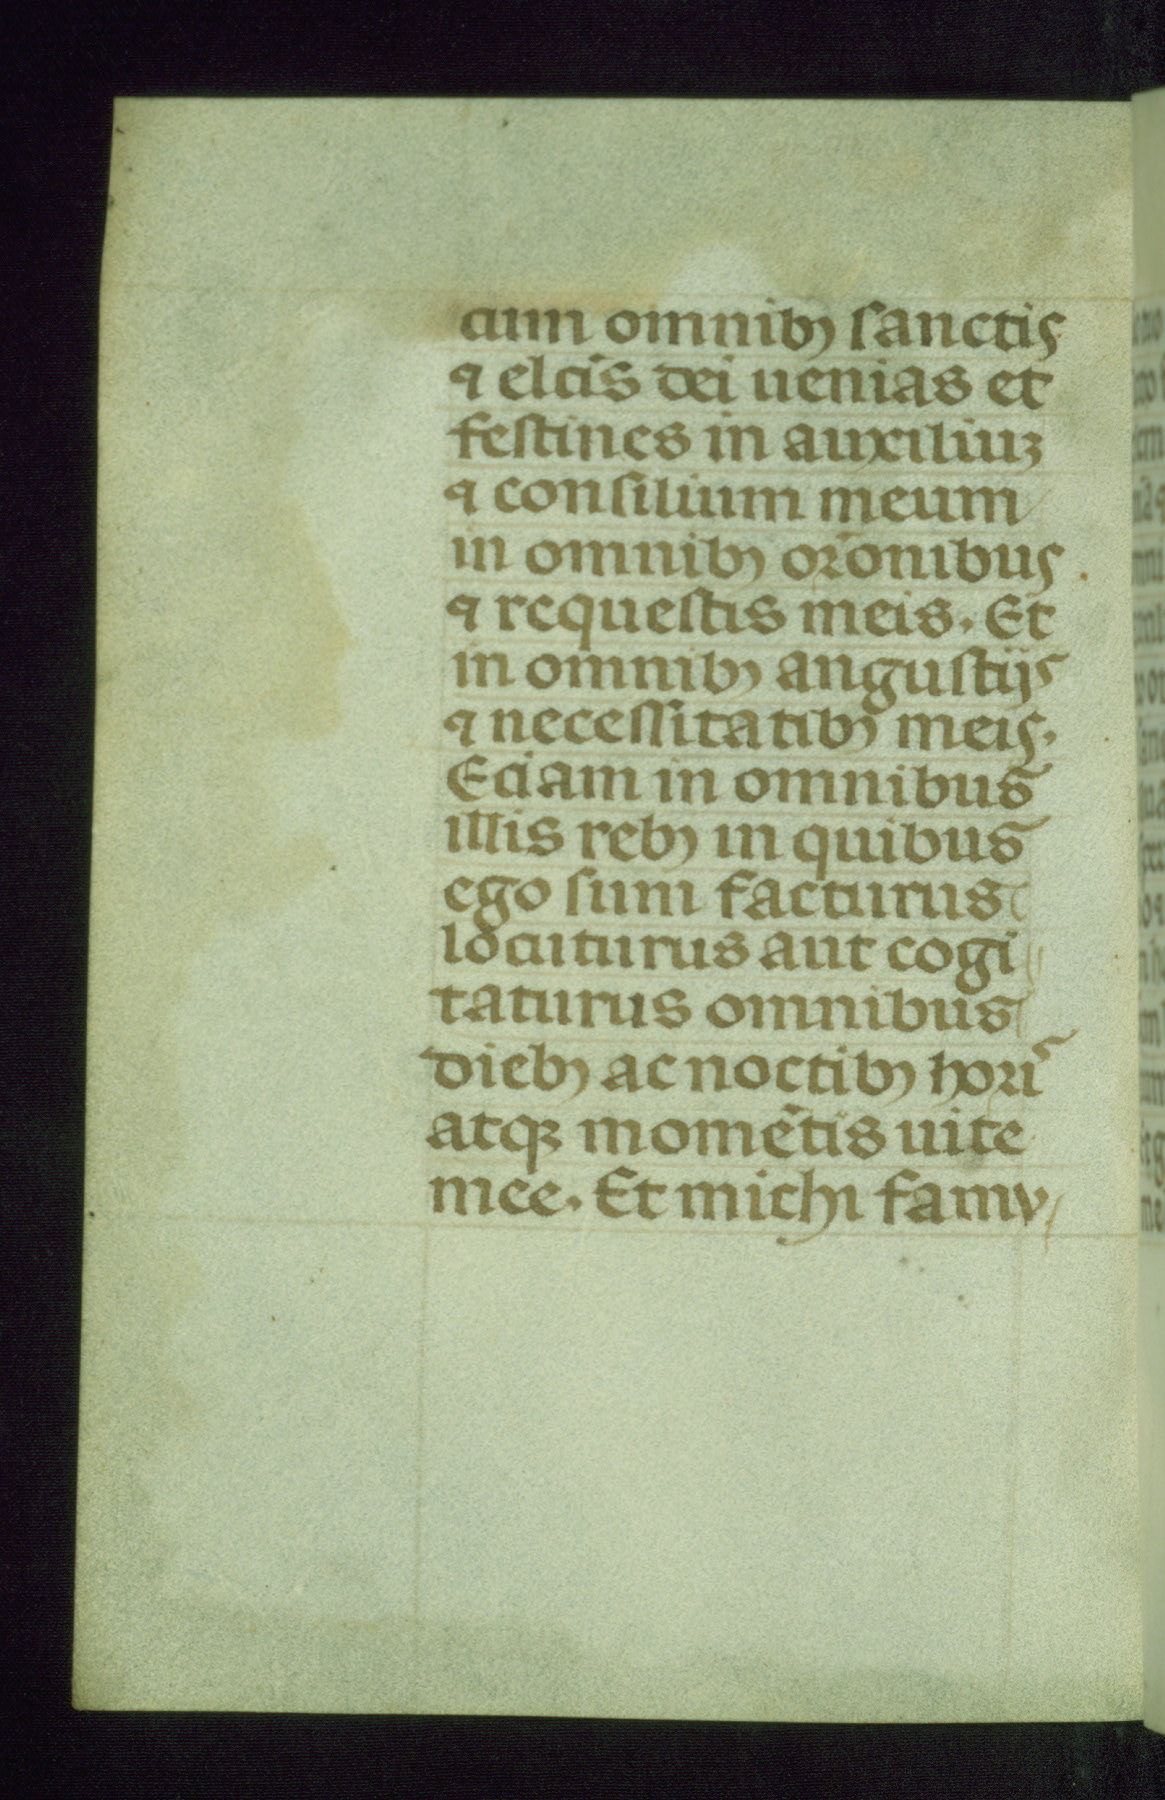 cum omnibꝰ sanctis
⁊ elcīs dei uenias et
festines in auxiliuꝫ
⁊ consilium meum
in omnibꝰ orōnibus
⁊ requestis meis. Et
in omnibꝰ angustijs
⁊ necessitatibꝰ meis.
Eciam in omnibus
illis rebꝰ in quibus
ego sum facturus
locuturus aut cogi
taturus omnibus
diebꝰ ac noctibꝰ horis
atqꝫ momētis uite
mee. Et michi famu